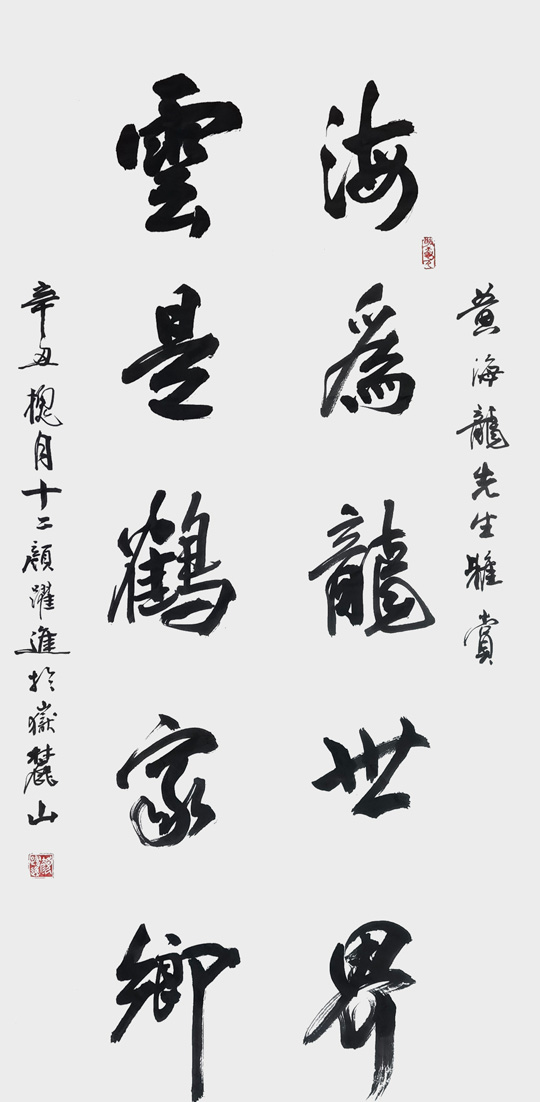 黄海龍先生雅賞
海爲龍世界
雲是鶴家鄉
辛丑槐月十二顔躍進於嶽麓山